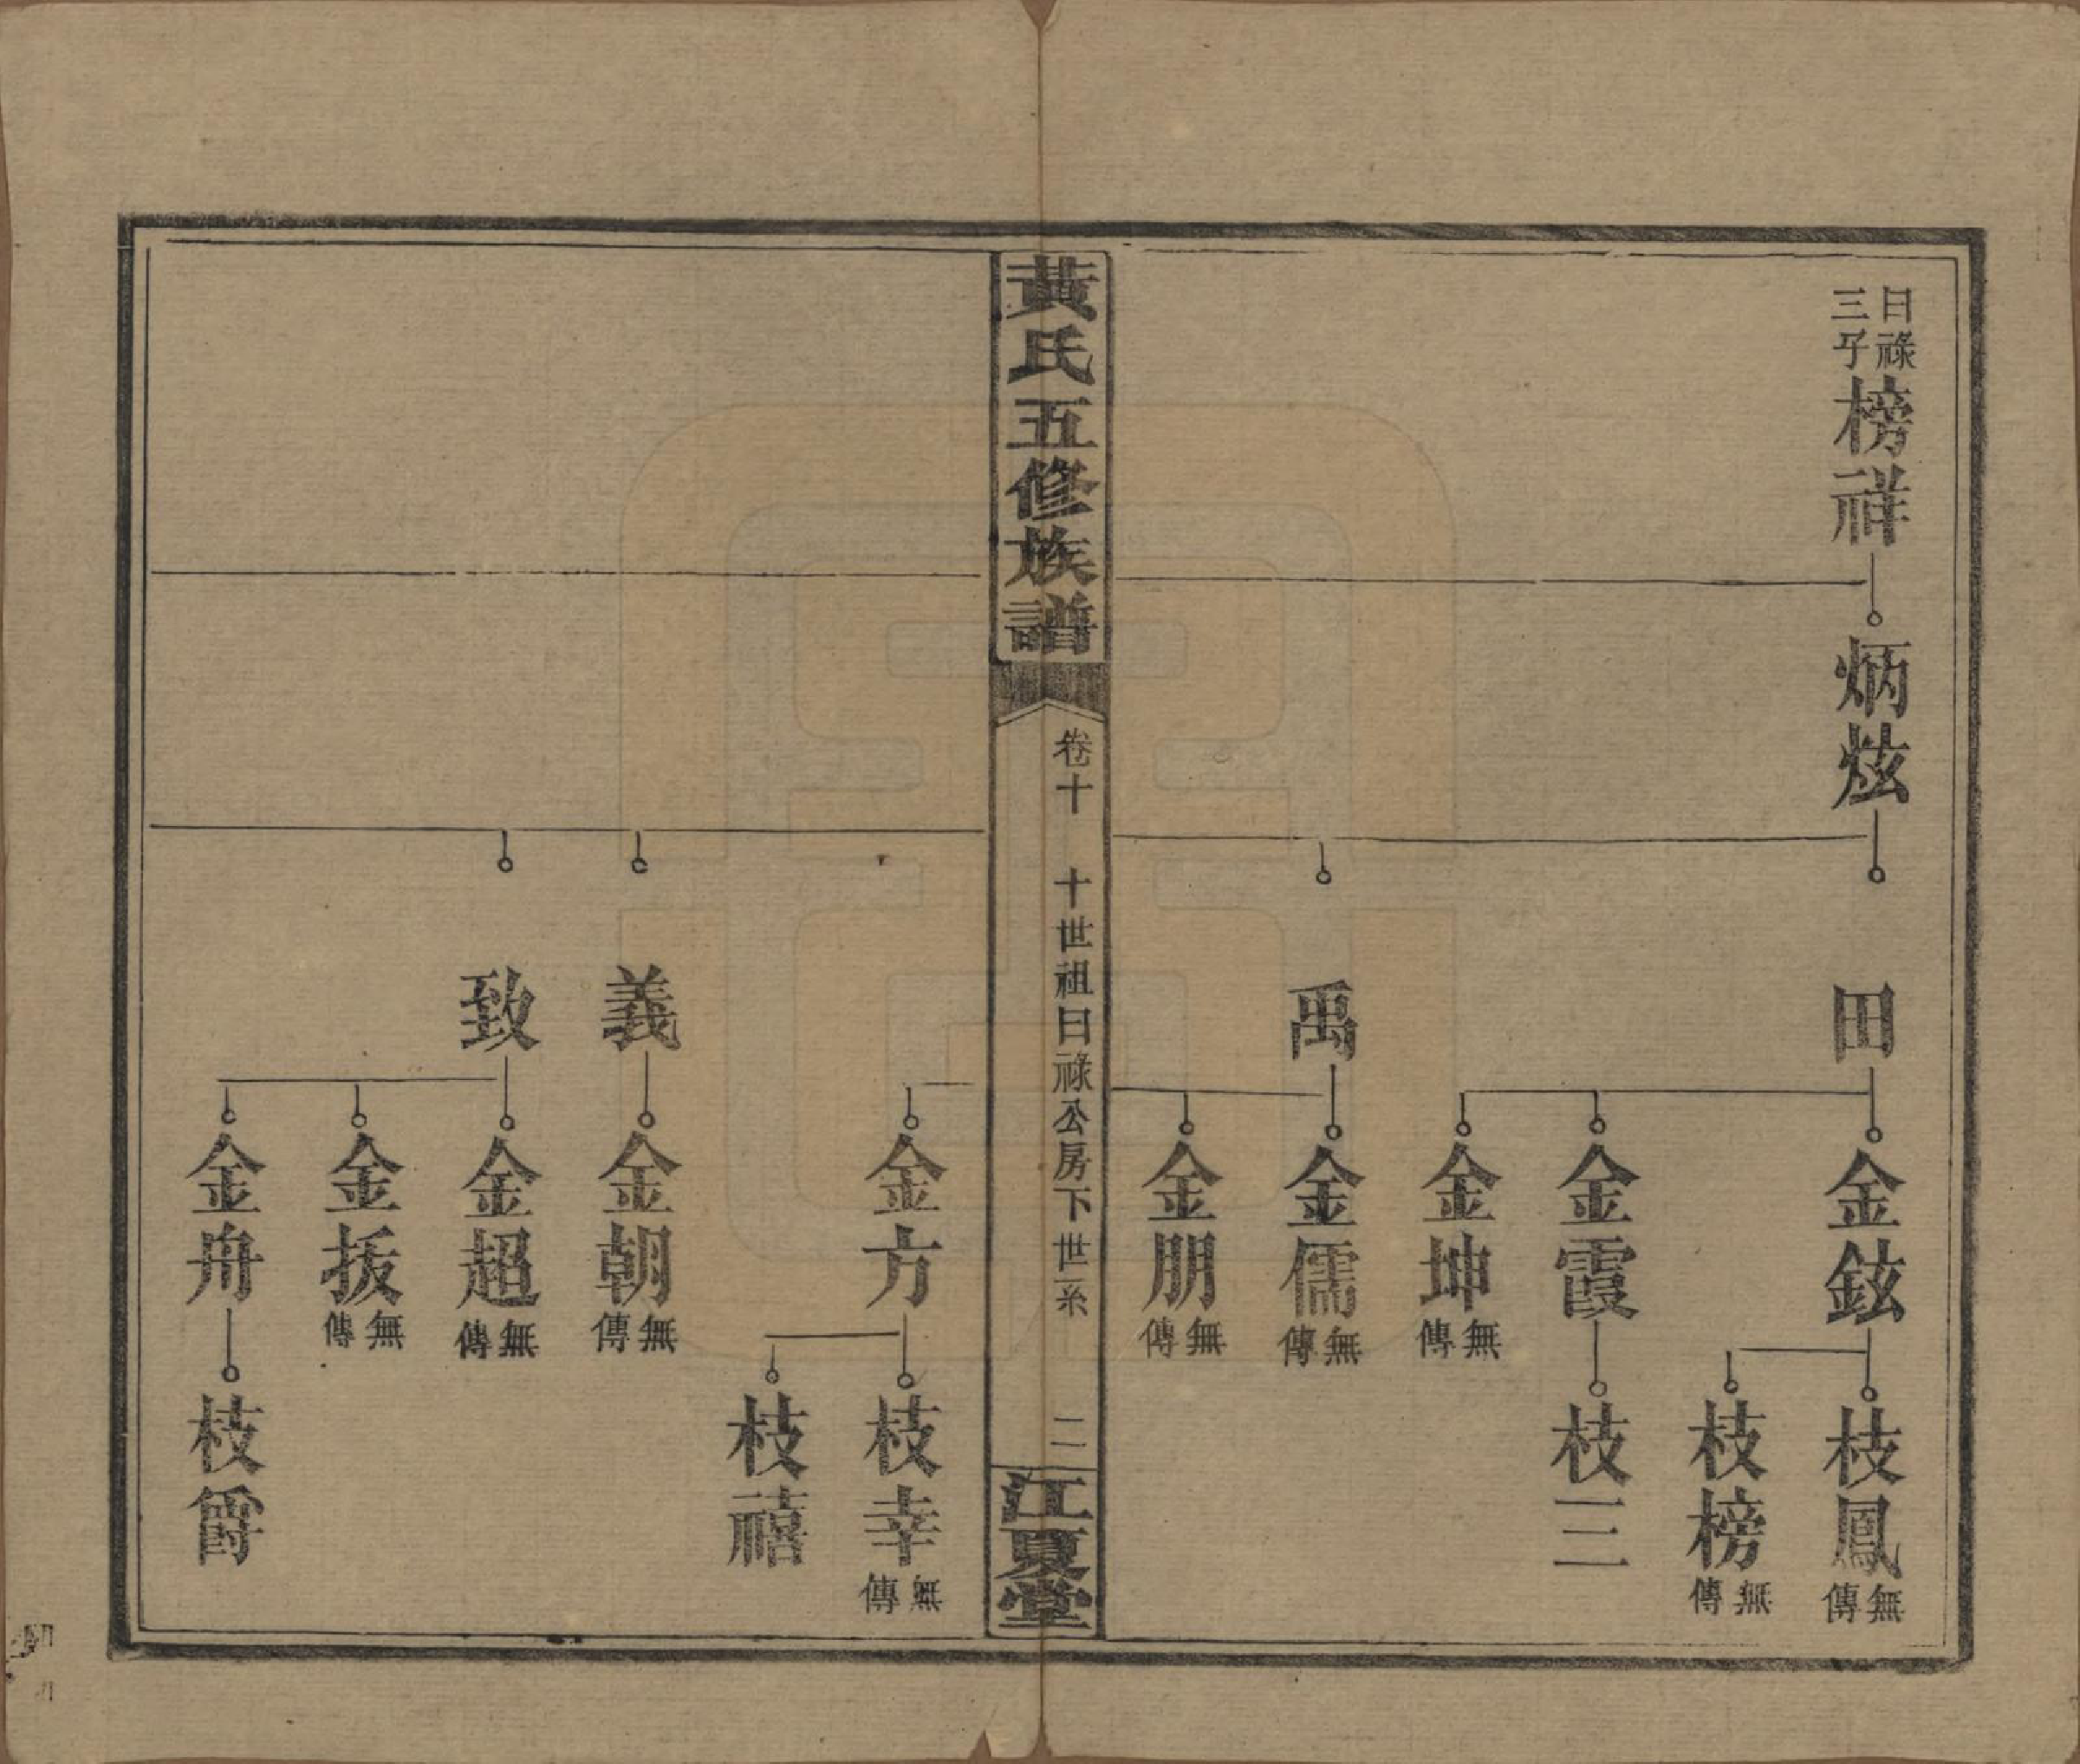 曰祿三子
榜祥
炳炫
田
金鉉
枝鳳
無傳
枝榜
無傳
金霞
枝三
金坤
無傳
禹
金儒
無傳
金朋
無傳
黃氏五修族譜
卷十
十世祖曰祿公房下世系
二
江夏堂
金方
枝幸
無傳
枝禧
義
金朝
無傳
致
金超
無傳
金拔
無傳
金舟
枝爵